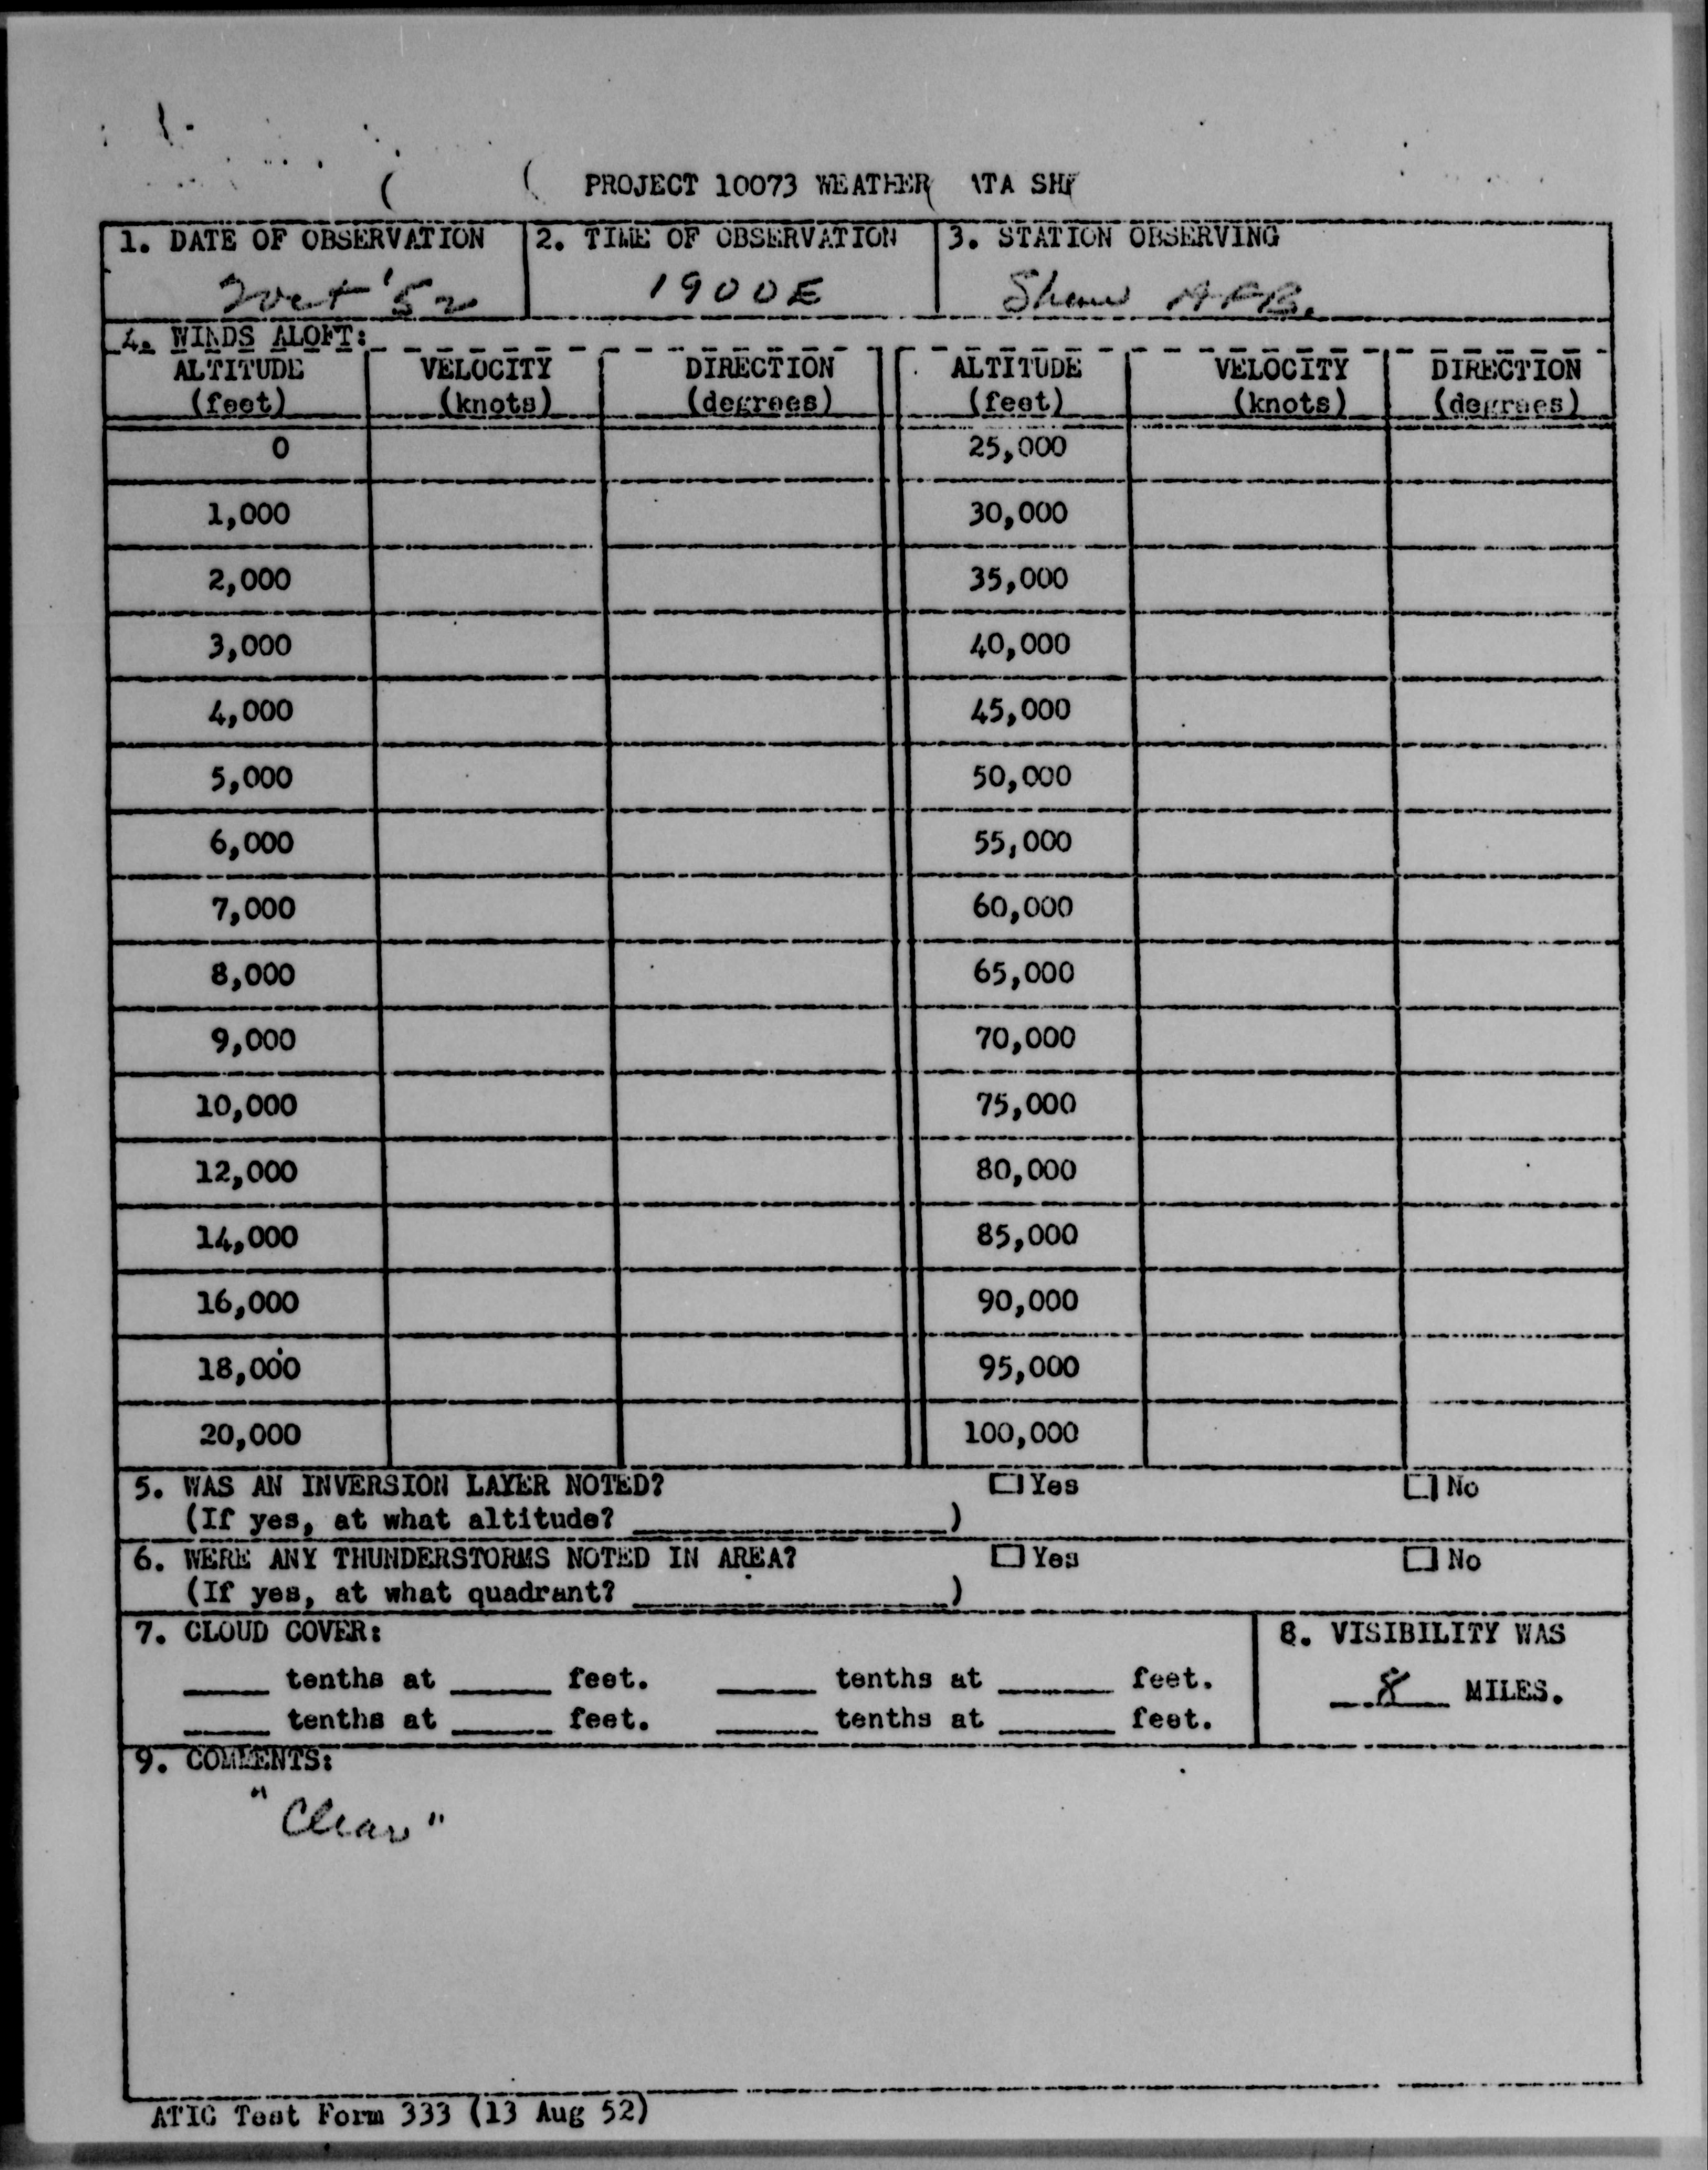 PROJECT 10073 WEATHER ATA SHE
1. DATE OF OBSERVATION 2. TIME OF OBSERVATION 3. STATION OBSERVING
Oct '52 1900E Shaw AFB.
4. WINDS ALOFT:
ALTITUDE VELOCITY DIRECTION ALTITUDE VELOCITY DIRECTION
(feet) (knots) (degrees) (feet) (knots) (degrees)
0 25,000
1,000 30,000
2,000 35,000
3,000 40,000
4,000 45,000
5,000 50,000
6,000 55,000
7,000 60,000
8,000 65,000
9,000 70,000
10,000 75,000
12,000 80,000
14,000 85,000
16,000 90,000
18,000 95,000
20,000 100,000
5. WAS AN INVERSION LAYER NOTED? Yes No
(If yes, at what altitude? )
6. WERE ANY THUNDERSTORMS NOTED IN AREA? Yes No
(If yes, at what quadrant? )
7. CLOUD COVER: 8. VISIBILITY WAS
____ tenths at ____ feet. ____ tenths at ____ feet. 8 MILES.
____ tenths at ____ feet. ____ tenths at ____ feet.
9. COMMENTS:
"Clear"
ATIC Test Form 333 (13 Aug 52)